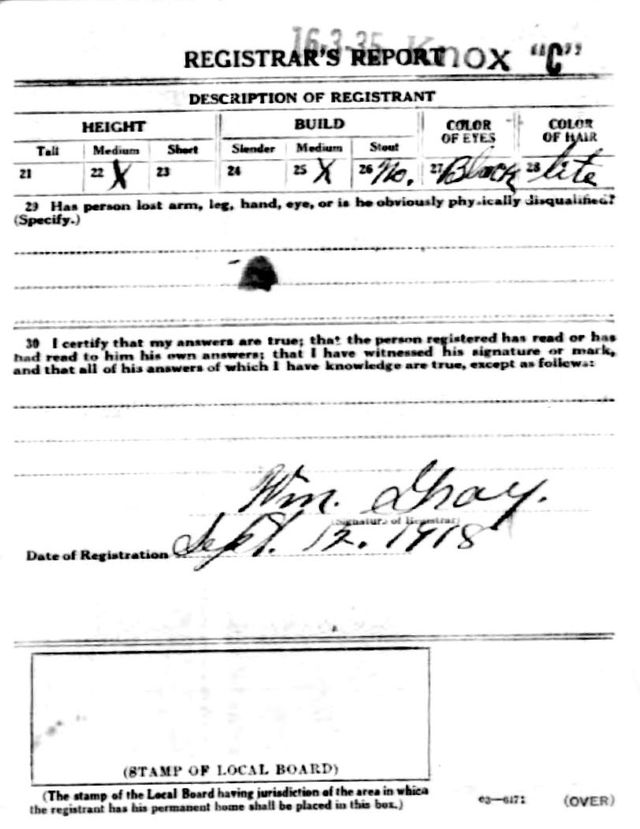 16-3-35 Knox "C"
REGISTRAR'S REPORT
DESCRIPTION OF REGISTRANT
HEIGHT BUILD COLOR OF EYES COLOR OF HAIR
Tall Medium Short Slender Medium Stout
21 22 X 23 24 25 X 26 No. 27 Black 28 lite
29 Has person lost arm, leg, hand, eye, or is he obviously physically disqualified?
(Specify.)
30 I certify that my answers are true; that the person registered has read or has
had read to him his own answers; that I have witnessed his signature or mark,
and that all of his answers of which I have knowledge are true, except as follows:
Wm. Gray.
(Signature of Registrar)
Date of Registration Sept. 12. 1918
(STAMP OF LOCAL BOARD)
(The stamp of the Local Board having jurisdiction of the area in which
the registrant has his permanent home shall be placed in this box.)
03—6171 (OVER)